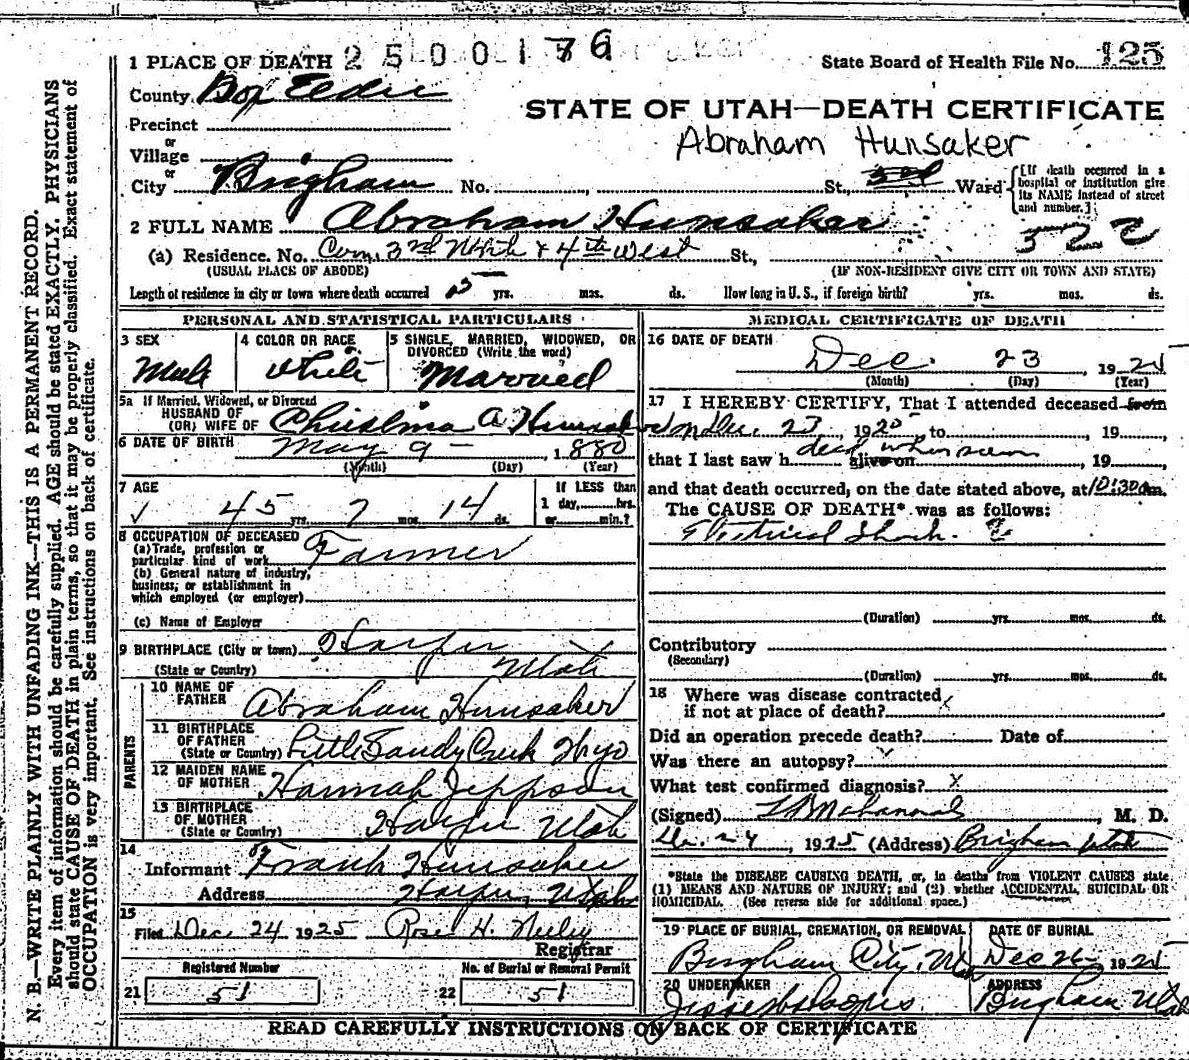 N. B.—WRITE PLAINLY WITH UNFADING INK—THIS IS A PERMANENT RECORD.
Every item of information should be carefully supplied. AGE should be stated EXACTLY. PHYSICIANS
should state CAUSE OF DEATH in plain terms, so that it may be properly classified. Exact statement of
OCCUPATION is very important. See instructions on back of certificate.
1 PLACE OF DEATH 2500176
State Board of Health File No. 125
County Box Elder
STATE OF UTAH—DEATH CERTIFICATE
Precinct
Abraham Hunsaker
or
Village
or
City Brigham No. St., 3rd Ward
[If death occurred in a
hospital or institution give
its NAME instead of street
and number.]
2 FULL NAME Abraham Hunsaker
322
(a) Residence. No. Corn. 3rd North & 4th West St.,
(USUAL PLACE OF ABODE) (IF NON-RESIDENT GIVE CITY OR TOWN AND STATE)
Length of residence in city or town where death occurred yrs. mos. ds. How long in U. S., if foreign birth? yrs. mos. ds.
PERSONAL AND STATISTICAL PARTICULARS
3 SEX
Male
4 COLOR OR RACE
White
5 SINGLE, MARRIED, WIDOWED, OR
DIVORCED (Write the word)
Married
5a If Married, Widowed, or Divorced
HUSBAND OF
(OR) WIFE OF A Hunsaker
6 DATE OF BIRTH May 9 - 1880
(Month) (Day) (Year)
7 AGE
45 yrs. 7 mos. 14 ds.
If LESS than
1 day, hrs.
or min.?
8 OCCUPATION OF DECEASED
(a) Trade, profession or
particular kind of work Farmer
(b) General nature of industry,
business; or establishment in
which employed (or employer)
(c) Name of Employer
9 BIRTHPLACE (City or town) Harper
(State or Country) Utah
PARENTS
10 NAME OF
FATHER Abraham Hunsaker
11 BIRTHPLACE
OF FATHER
(State or Country) Little Sandy Creek Wyo
12 MAIDEN NAME
OF MOTHER Hannah Jeppson
13 BIRTHPLACE
OF MOTHER
(State or Country) Harper Utah
14
Informant Frank Hunsaker
Address Harper, Utah
15
Filed Dec 24 1925 Rose H. Neeley
Registrar
Registered Number
21 51
No. of Burial or Removal Permit
22 51
MEDICAL CERTIFICATE OF DEATH
16 DATE OF DEATH
Dec. 23, 1925
(Month) (Day) (Year)
17 I HEREBY CERTIFY, That I attended deceased from
on Dec. 23 1925 to , 19 ,
that I last saw h dead when seen alive on , 19 ,
and that death occurred, on the date stated above, at 10:30 am.
The CAUSE OF DEATH* was as follows:
Electrical Shock.
(Duration) yrs. mos. ds.
Contributory
(Secondary)
(Duration) yrs. mos. ds.
18 Where was disease contracted
if not at place of death?
Did an operation precede death? Date of
Was there an autopsy?
What test confirmed diagnosis? X
(Signed) , M. D.
Dec. 24, 1925 (Address) Brigham Utah
*State the DISEASE CAUSING DEATH, or, in deaths from VIOLENT CAUSES state
(1) MEANS AND NATURE OF INJURY; and (2) whether ACCIDENTAL, SUICIDAL OR
HOMICIDAL. (See reverse side for additional space.)
19 PLACE OF BURIAL, CREMATION, OR REMOVAL
Brigham City, Utah
DATE OF BURIAL
Dec 26 1925
20 UNDERTAKER
ADDRESS
Brigham Utah
READ CAREFULLY INSTRUCTIONS ON BACK OF CERTIFICATE